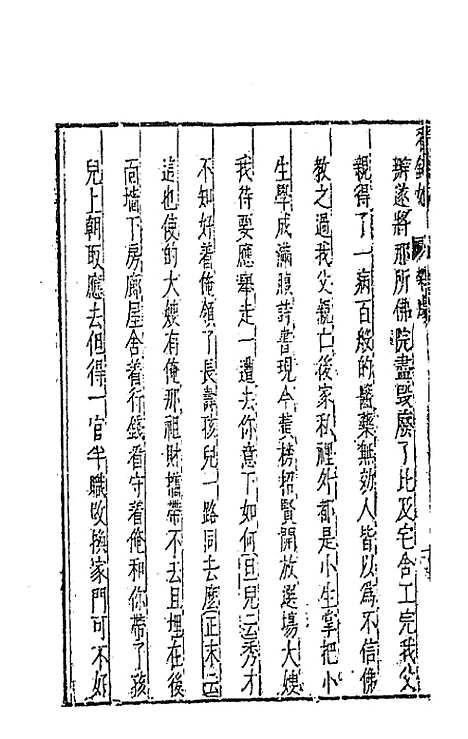 辦遂將那所佛院盡毀廢了比及宅舍工完我父
親得了一病百般的醫藥無効人皆以爲不信佛
教之過我父親亡後家私裡外都是小生掌把小
生學成滿腹詩書現今黄榜招賢開放選場大嫂
我待要應舉走一遭去你意下如何旦兒云秀才
不知好着俺領了長壽孩兒一路同去麽正末云
這也使的大嫂有俺那祖財攜帶不去且埋在後
面墻下房廊屋舍着行錢看守着俺和你帶了孩
兒上朝取應去但得一官半職改換家門可不好